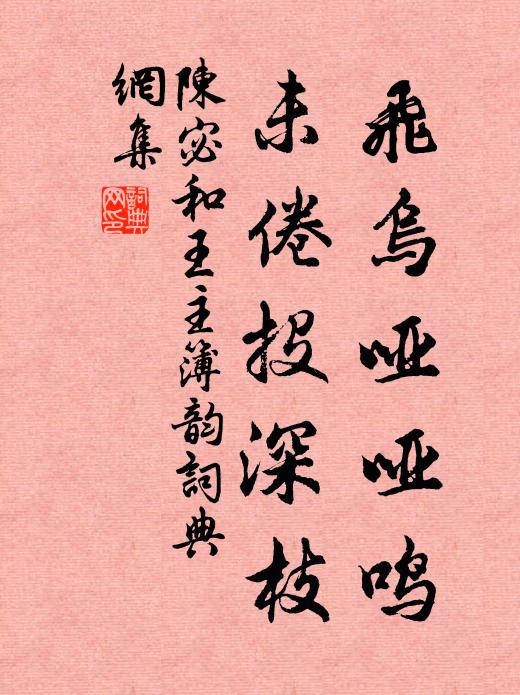 飛烏哑哑鸣
未倦投深枝
陳宓和王主簿韵詞典
網集
詞典網印